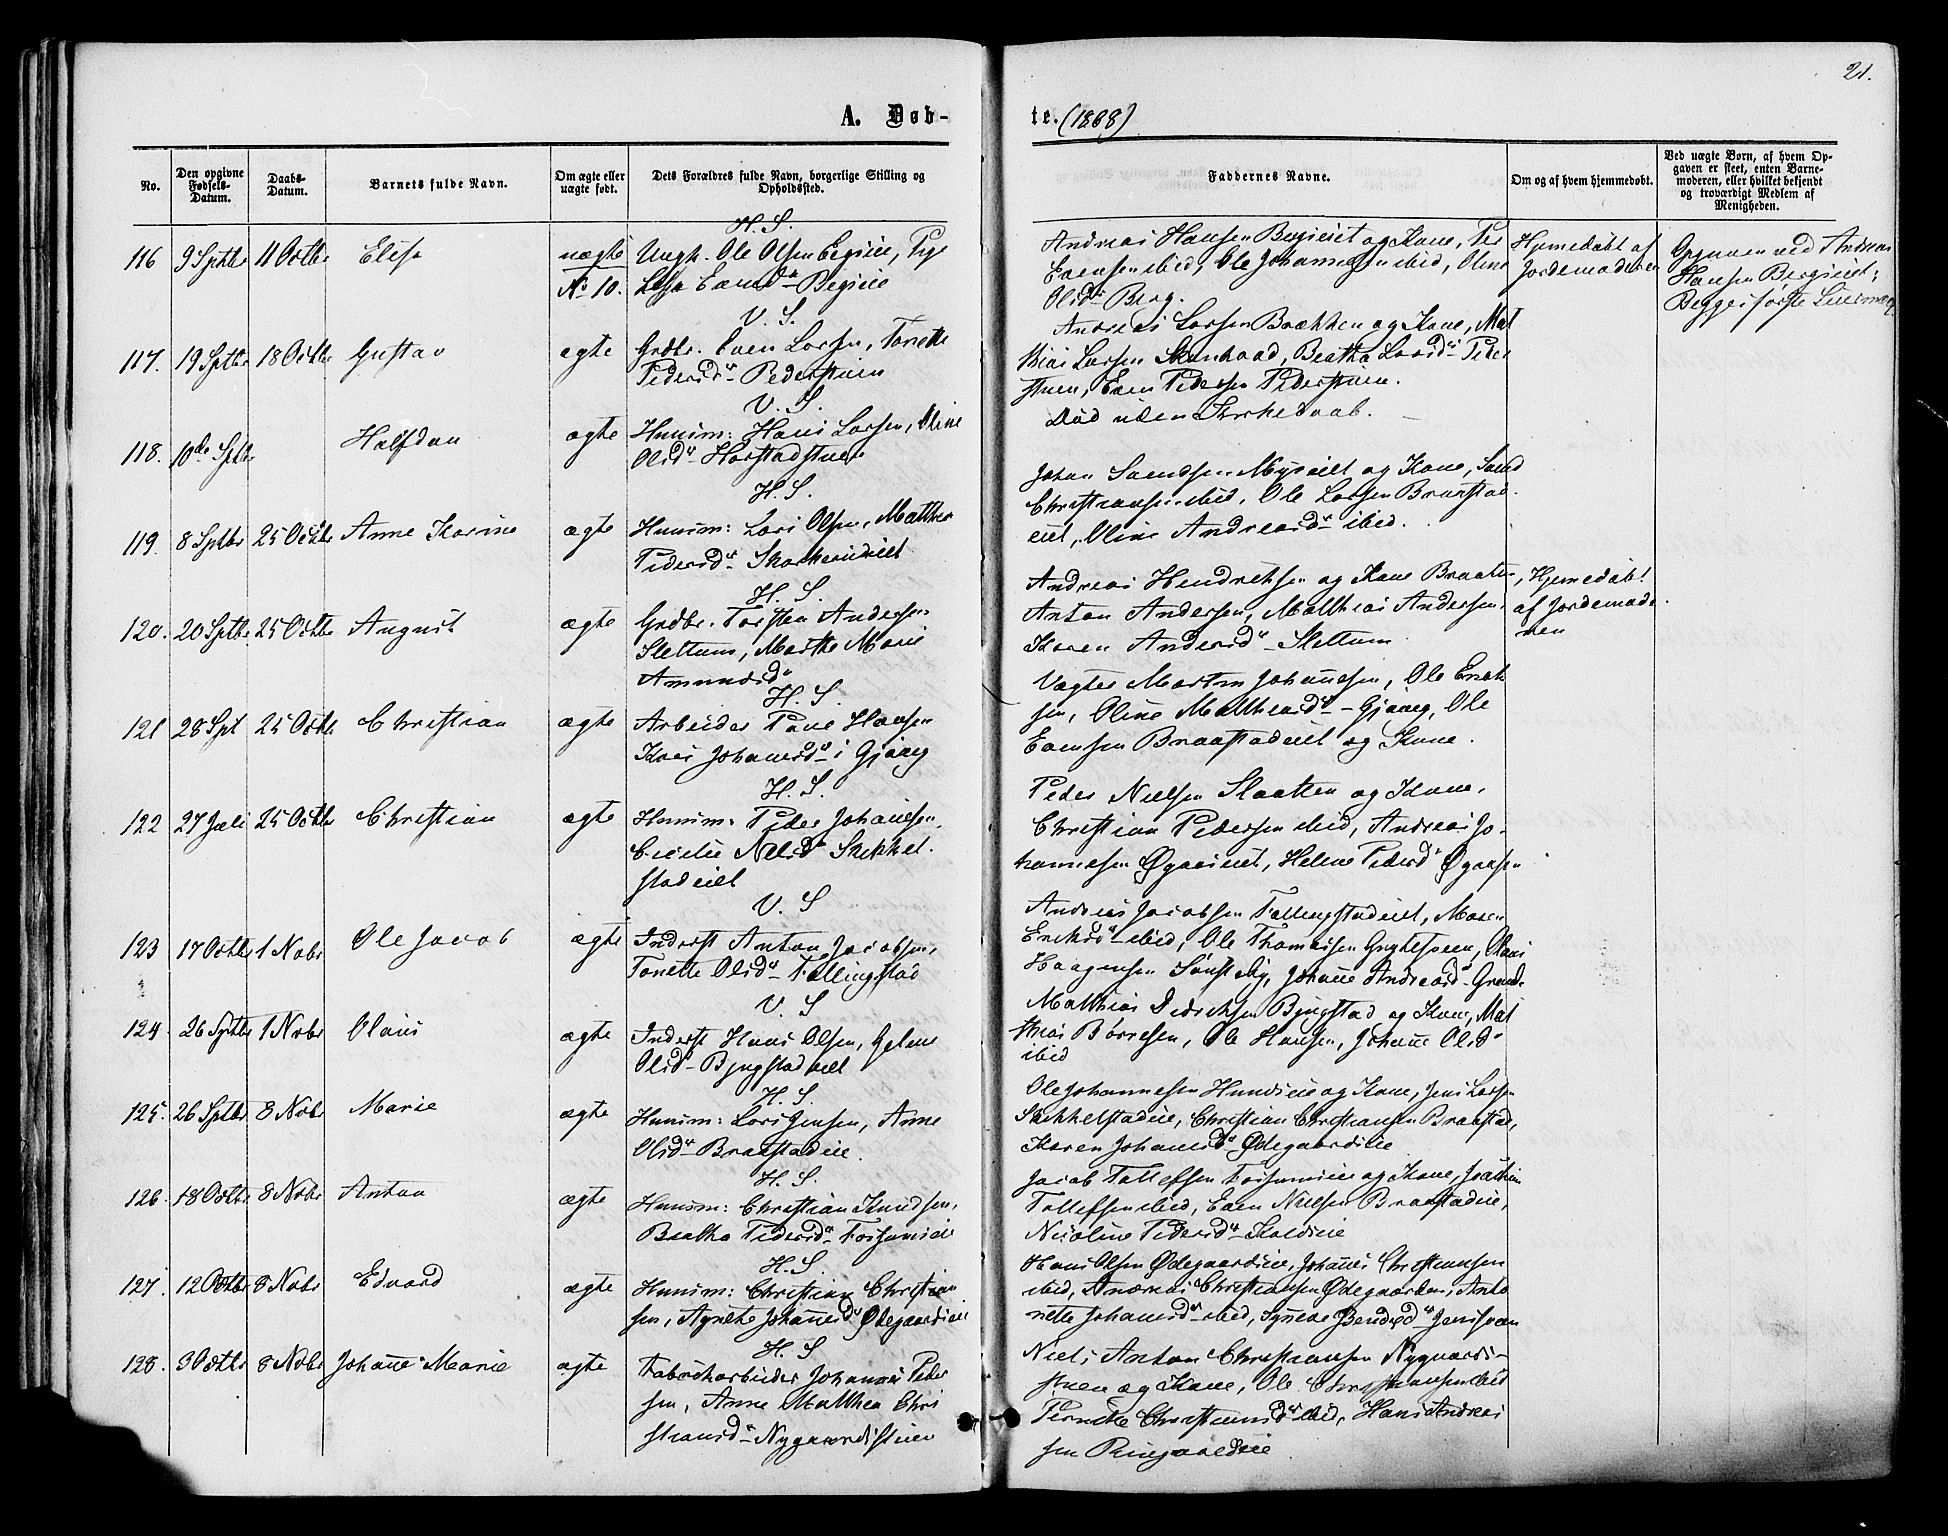 21.
A. Døb-
te. (1868)
No.
Den opgivne Fødsels-Datum.
Daabs-Datum.
Barnets fulde Navn.
Om ægte eller uægte født.
Dets Forældres fulde Navn, borgerlige Stilling og Opholdssted.
Faddernes Navne.
Om og af hvem hjemmedøbt.
Ved uægte Børn, af hvem Op-
gaven er skeet, enten Barne-
moderen, eller hvilket bekjendt
og troværdigt Medlem af
Menigheden.
H. S.
116 9 Septbr 11 Octbr Elise uægte Ungk. Ole Olsen Pige
No 10.
Andreas Hansen Bergseiet og Kone, Per
Evensen ibid, Ole Johannesen ibid, Oline
Olsdr Berg.
Hjemedøbt af
Jordemoderen
Opgiven ved Andreas
Hansen Bergseiet;
Begges første Leiermaal
V. S.
117. 19 Septbr 18 Octbr Gustav ægte Grdbr. Even Larsen, Tonette
Pedersdr Pederstuen
Andreas Larsen Brækken og Kone, Mat
thias Larsen Beatha Larsdr Peder
stuen, Even Pedersen Pederstuen.
V. S.
118. 10de Septbr Halfdan ægte Huusm: Hans Larsen, Oline
Olsdr Harstadstuen
Død uden Kirkedaab.
H. S.
119. 8 Septbr 25 Octbr Anne Karine ægte Huusm: Lars Olsen, Matthea
Pedersdr
Johan Svendsen Myreiet og Kone, Svend
Christiansen ibid, Ole Larsen Braastad-
eiet, Oline Andreasdr ibid.
H. S.
120. 20 Septbr 25 Octbr August ægte Grdbr. Torsten Andersen
Slettum, Marthe Marie
Amundsdr
Andreas Hendriksen og Kone Braaten,
Anton Andersen, Matthias Andersen,
Karen Andersdr Slettum
Hjemedøbt
af Jordemode-
ren
H. S.
121 28 Sept 25 Octbr Christian ægte Arbeider Hansen
Kari Johansdr i Gjøvig
Vægter Martin Johannesen, Ole Erik
sen, Oline Mathiasdr Gjøvig, Ole
Evensen Braastadeiet og Kone.
H. S.
122 27 Juli 25 Octbr Christian ægte Huusm: Peder Johannesen,
Cecilie Nilsdr Skikkel-
stadeiet
Peder Nielsen Slaatten og Kone,
Christian Pedersen ibid, Andreas Jo-
hannesen Øgaaseiet, Helene Pedersdr Øgaasen
V. S
123 17 Octbr 1 Nobr Ole Jacob ægte Inderst Anton Jacobsen,
Tonette Olsdr Fallingstad
Andreas Jacobsen Fallingstadeiet, Maren
Eriksdr ibid, Ole Thomassen
Haagensen Johanne Andreasdr
V. S
124. 26 Septbr 1 Nobr Olaus ægte Inderst Hans Olsen, Helene
Olsdr Byngstadeiet
Matthias Didriksen Byngstad og Kone, Mat
thias Børresen, Ole Hansen, Johanne Olsdr
ibid
H. S.
125. 26 Septbr 8 Nobr Marie ægte Huusm: Lars Jensen, Anne
Olsdr Braastadeie.
Ole Johannesen Hundseie og Kone, Jens Larsen
Skikkelstadeie, Christian Christiansen Braastad,
Karen Johansdr Ødegaardseie
H. S.
126. 18 Octbr 8 Nobr Anton ægte Huusm: Christian Knudsen,
Beatha Pedersdr Fossumseie
Jacob Tollefsen Fossumeie og Kone, Joachim
Tollefsen ibid, Even Nielsen Braastadeie,
Nicoline Pedersdr
H. S.
127. 12 Octbr 8 Nobr Edvard ægte Huusm: Christian Christian
sen, Agnethe Johannesdr Ødegaardseie
Hans Olsen Ødegaardseie, Johannes Christiansen
ibid, Andreas Christiansen Ødegaarden, Anto
nette Johansdr ibid,
H. S
128. 3 Octbr 8 Nobr Johanne Marie ægte Fabrikarbeider Johannes Peder
sen, Anne Matthea Chri
stiansdr Nygaardstuen
Niels Anton Christiansen Nygaards-
stuen og Kone, Ole Christiansen ibid
Pernelle Christiansdr ibid, Hans Andreas
sen